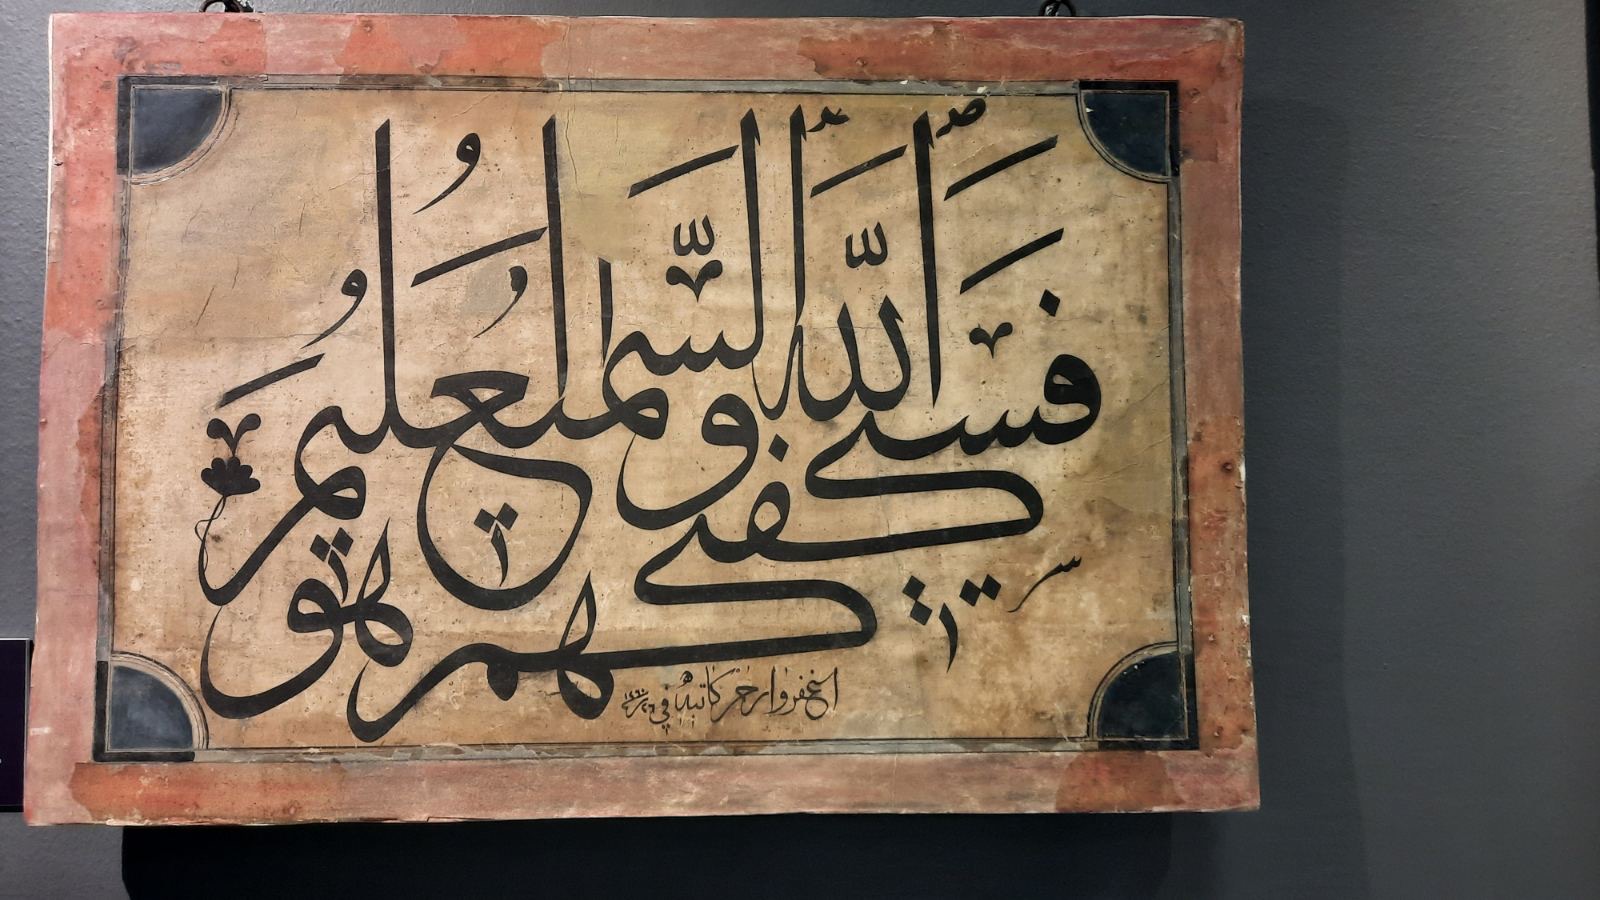 فسيكفيكهم الله وهو السميع العليم
اغفر وارحم كاتبه في